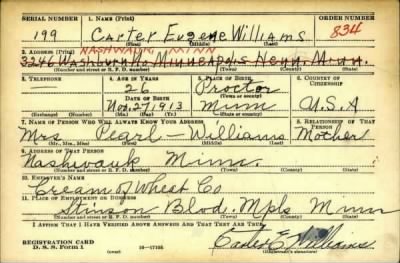 SERIAL NUMBER 1. NAME (Print) ORDER NUMBER
199 Carter Eugene Williams 834
(First) (Middle) (Last)
NASHWAUK MINN
2. ADDRESS (Print)
3246 Washburn No Minneapolis Henn. Minn.
(Number and street or R. F. D. number) (Town) (County) (State)
3. TELEPHONE 4. AGE IN YEARS 5. PLACE OF BIRTH 6. COUNTRY OF CITIZENSHIP
— 26 Proctor
DATE OF BIRTH (Town or county)
Nov. 27 1913 Minn U.S.A
(Exchange) (No.) (Mo.) (Day) (Yr.) (State or country)
7. NAME OF PERSON WHO WILL ALWAYS KNOW YOUR ADDRESS 8. RELATIONSHIP OF THAT PERSON
Mrs Pearl — Williams Mother
(Mr., Mrs., Miss) (First) (Middle) (Last)
9. ADDRESS OF THAT PERSON
Nashwauk Minn.
(Number and street or R. F. D. number) (Town) (County) (State)
10. EMPLOYER'S NAME
Cream of Wheat Co
11. PLACE OF EMPLOYMENT OR BUSINESS
Stinson Blvd. Mpls Minn
(Number and street or R. F. D. number) (Town) (County) (State)
I AFFIRM THAT I HAVE VERIFIED ABOVE ANSWERS AND THAT THEY ARE TRUE.
REGISTRATION CARD
D. S. S. Form 1 16—17105 Carter E. Williams
(Registrant's signature)